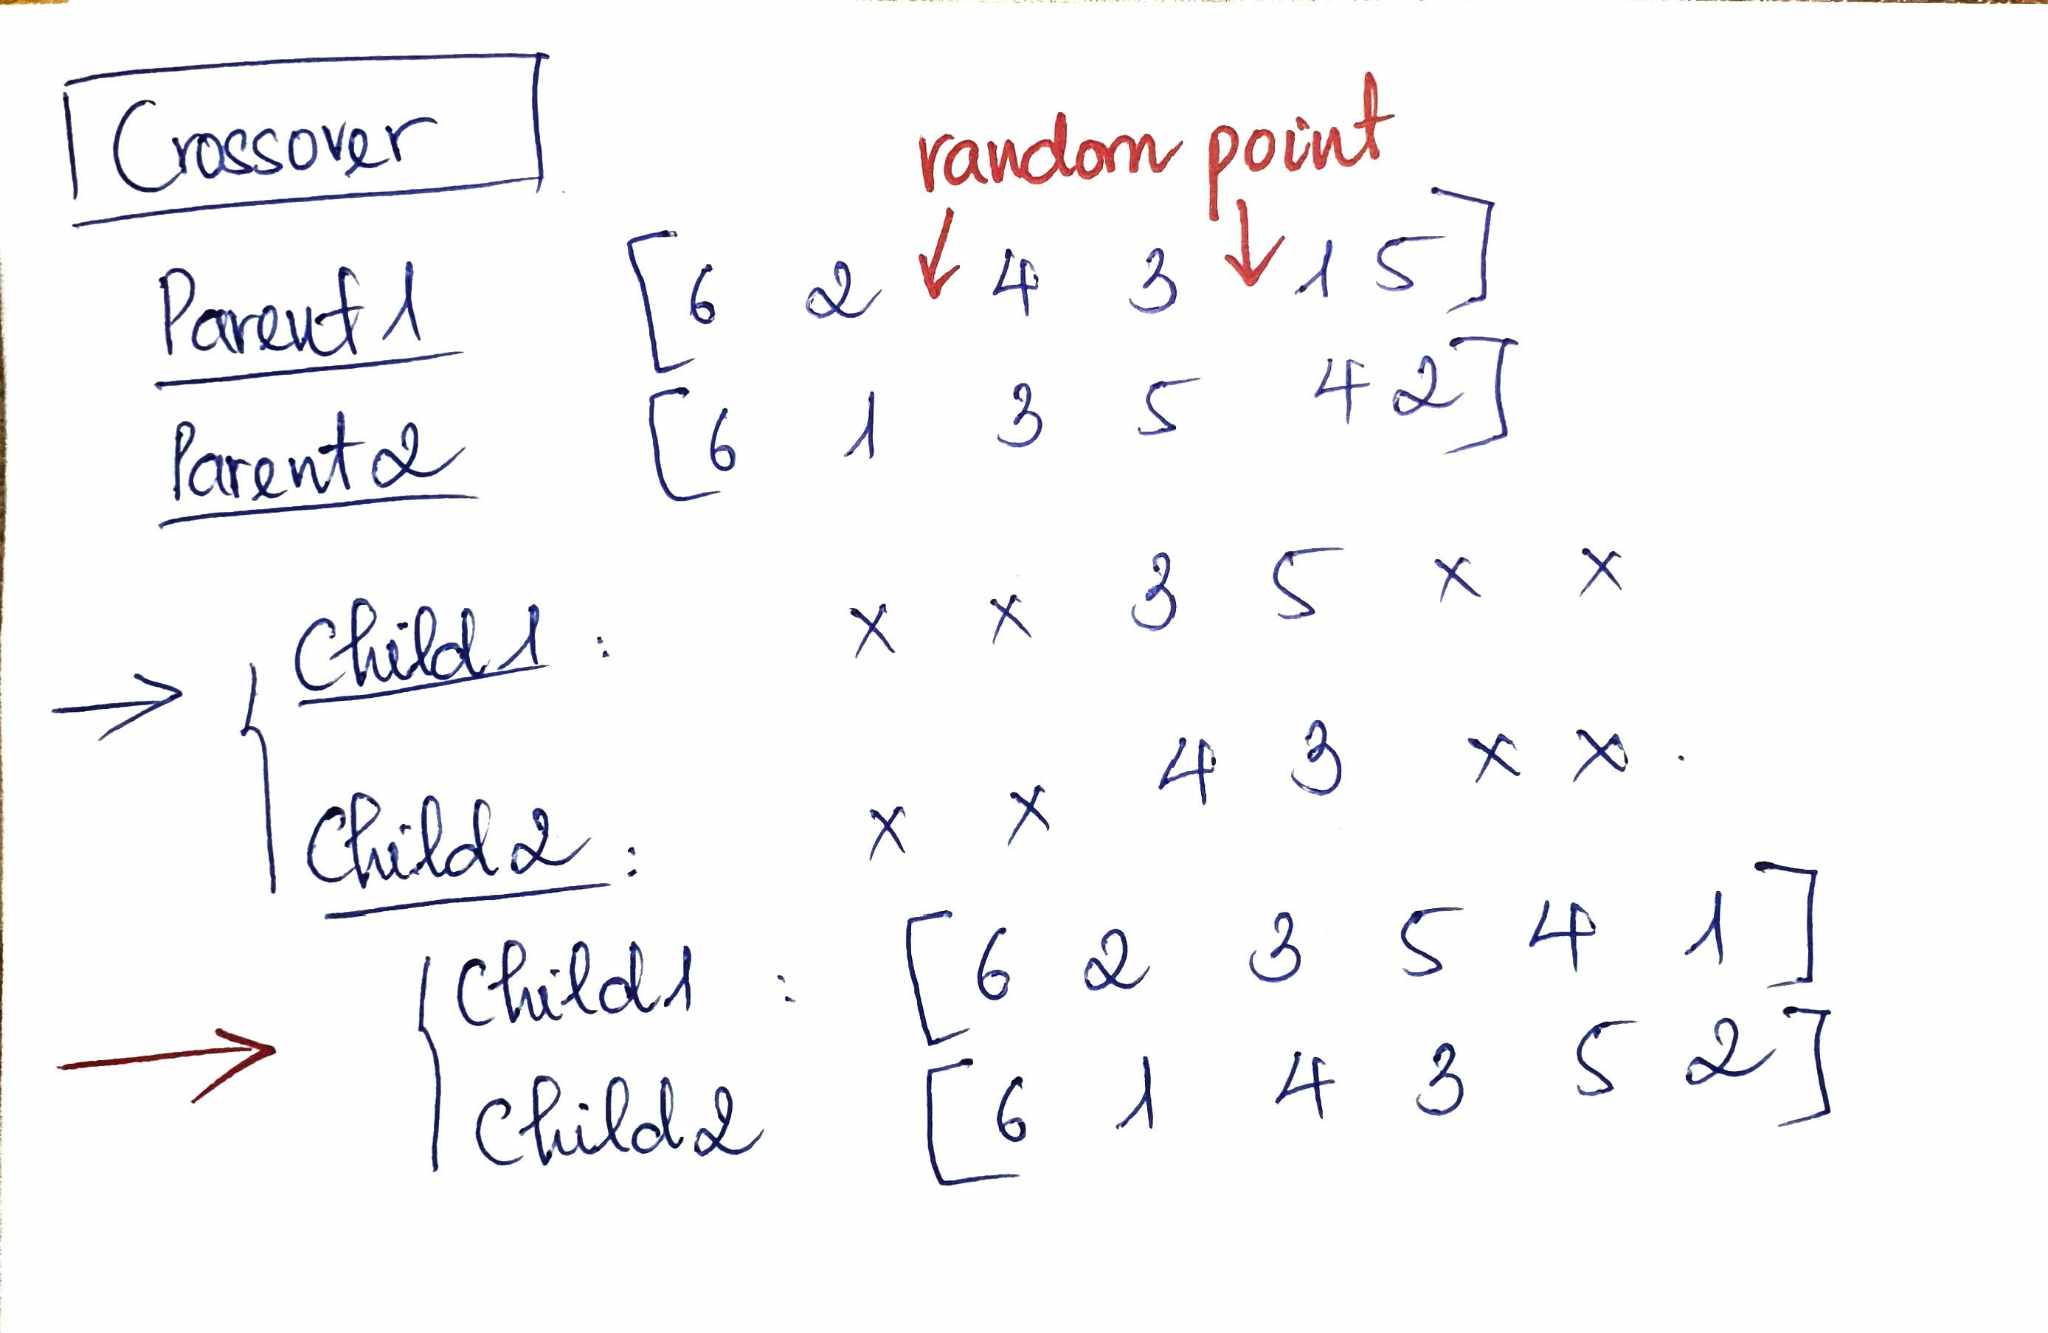 Crossover
random point
Parent 1 [6 2 4 3 1 5]
Parent 2 [6 1 3 5 4 2]
Child 1 : x x 3 5 x x
Child 2 : x x 4 3 x x .
Child 1 : [6 2 3 5 4 1]
Child 2 [6 1 4 3 5 2]